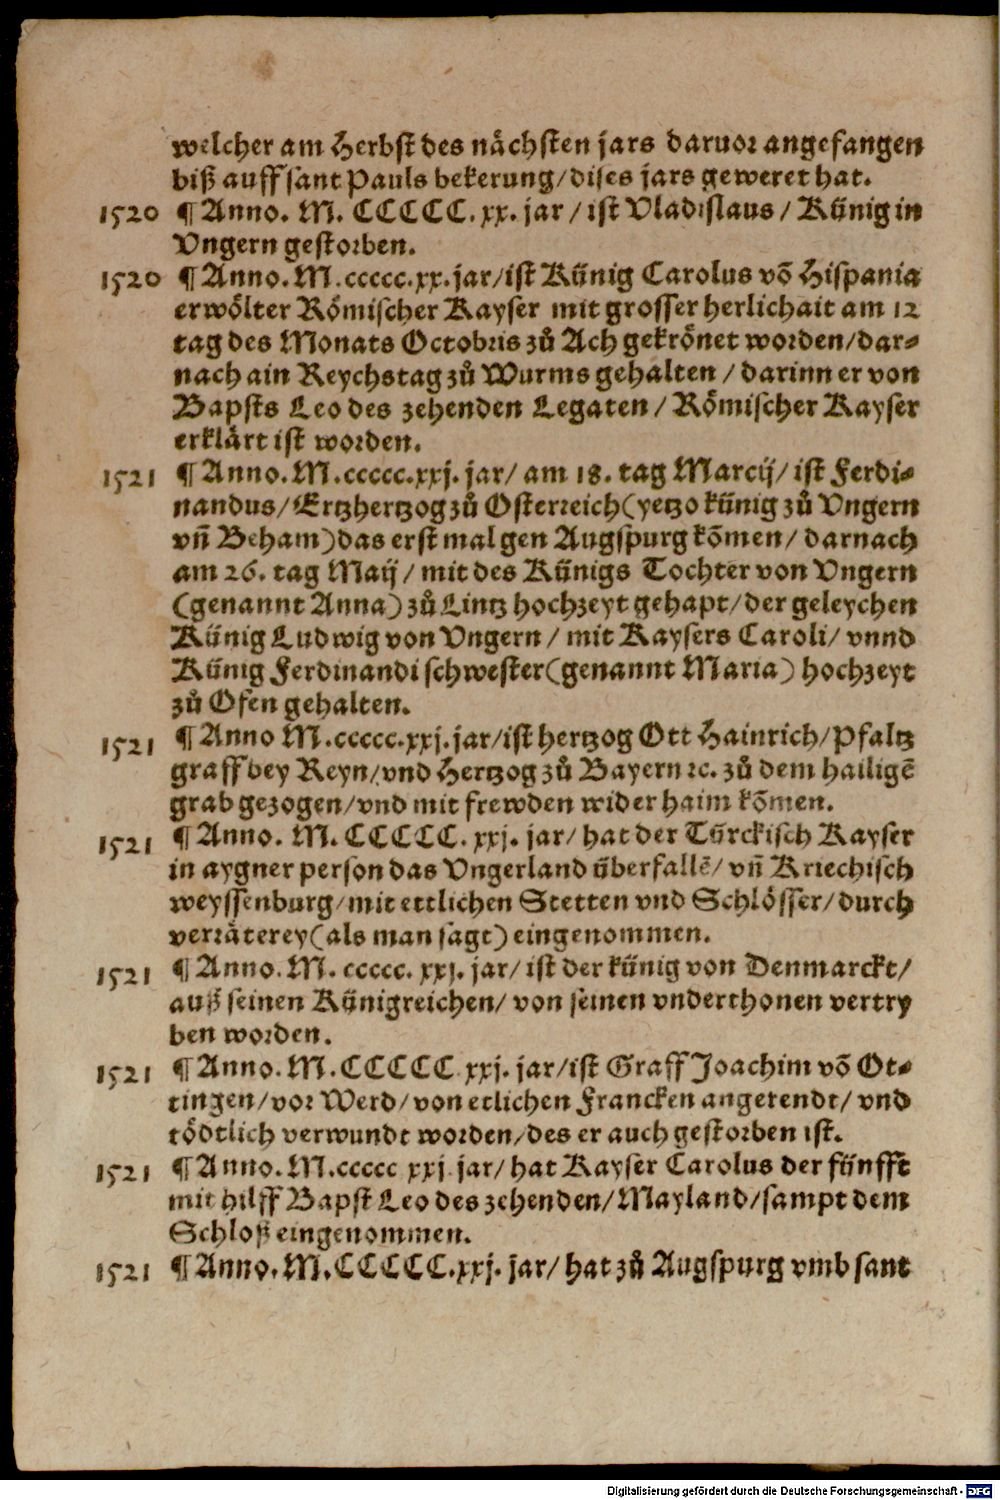 welcher am Herbst des nächsten jars daruor angefangen
biß auff sant Pauls bekerung/dises jars geweret hat.
1520 ¶ Anno. M. CCCCC. xx. jar / ist Vladislaus / Künig in
Vngern gestorben.
1520 ¶ Anno. M. ccccc. xx. jar/ist Künig Carolus võ Hispania
erwölter Römischer Kayser mit grosser herlichait am 12
tag des Monats Octobris zů Ach gekrönet worden/dar⸗
nach ain Reychstag zů Wurms gehalten / darinn er von
Bapsts Leo des zehenden Legaten / Römischer Kayser
erklärt ist worden.
1521 ¶ Anno. M. ccccc. xxj. jar/ am 18. tag Marcij/ ist Ferdi⸗
nandus/ Ertzhertzog zů Osterreich (yetzo künig zů Vngern
vñ Beham) das erst mal gen Augspurg kõmen/ darnach
am 26. tag Maij / mit des Künigs Tochter von Vngern
(genannt Anna) zů Lintz hochzeyt gehapt/der geleychen
Künig Ludwig von Vngern / mit Kaysers Caroli/ vnnd
Künig Ferdinandi schwester (genannt Maria) hochzeyt
zů Ofen gehalten.
1521 ¶ Anno M. ccccc. xxj. jar/ist hertzog Ott Hainrich/Pfaltz
graff bey Reyn/vnd Hertzog zů Bayern ꝛc. zů dem hailigẽ
grab gezogen/vnd mit frewden wider haim kõmen.
1521 ¶ Anno. M. CCCCC. xxj. jar/ hat der Türckisch Kayser
in aygner person das Vngerland überfallẽ/ vñ Kriechisch
weyssenburg/mit ettlichen Stetten vnd Schlösser/durch
verräterey (als man sagt) eingenommen.
1521 ¶ Anno. M. ccccc. xxj. jar/ ist der künig von Denmarckt/
auß seinen Künigreichen/ von seinen vnderthonen vertry
ben worden.
1521 ¶ Anno. M. CCCCC xxj. jar/ist Graff Joachim võ Ot⸗
tingen/vor Werd/von etlichen Francken angerendt/ vnd
tödtlich verwundt worden/des er auch gestorben ist.
1521 ¶ Anno. M. ccccc xxj jar/ hat Kayser Carolus der fünfft
mit hilff Bapst Leo des zehenden/Mayland/sampt dem
Schloß eingenommen.
1521 ¶ Anno. M. CCCCC. xxj. jar/ hat zů Augspurg vmb sant
Digitalisierung gefördert durch die Deutsche Forschungsgemeinschaft - DFG